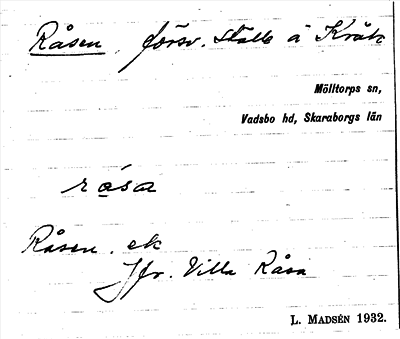 Råsen, försv. ställe å Kråk
Mölltorps sn,
Vadsbo hd, Skaraborgs län
råsa
Råsen. ek
Jfr. Villa Råsa
L. MADSÉN 1932.